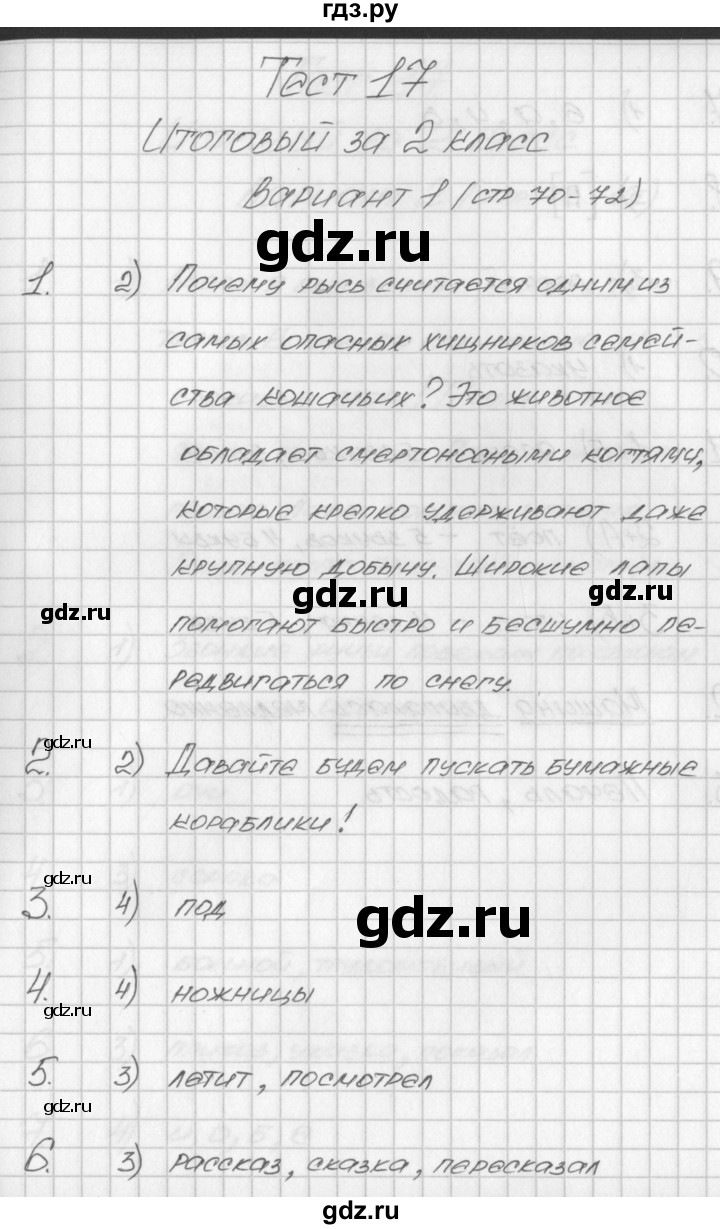 гдз.ру
Тест 17
Итоговый за 2 класс
Вариант 1 (стр 70-72)
gdz.ru
1. 2) Почему рысь считается одним из
самых опасных хищников семей-
ства кошачьих? Это животное
обладает смертоносными когтями,
которые крепко удерживают даже
крупную добычу. Широкие лапы
gdz.ru gdz.ru gdz.ru
помогают быстро и бесшумно пе-
редвигаться по снегу.
gdz.ru
2. 2) Давайте будем пускать бумажные
кораблики!
gdz.ru
3. 4) под
gdz.ru
4. 4) ножницы
gdz.ru
5. 3) летит, посмотрел
gdz.ru
6. 3) рассказ, сказка, пересказал
gdz.ru